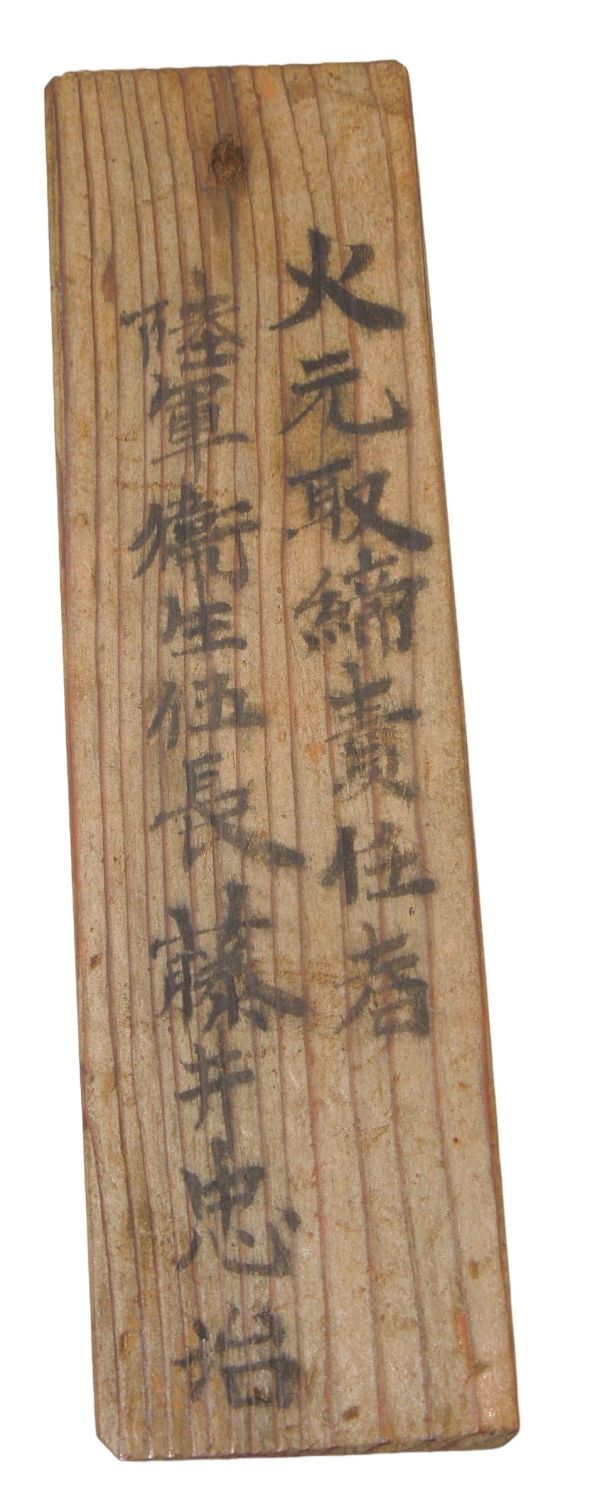 火元取締責任者
陸軍衛生伍長藤井忠治